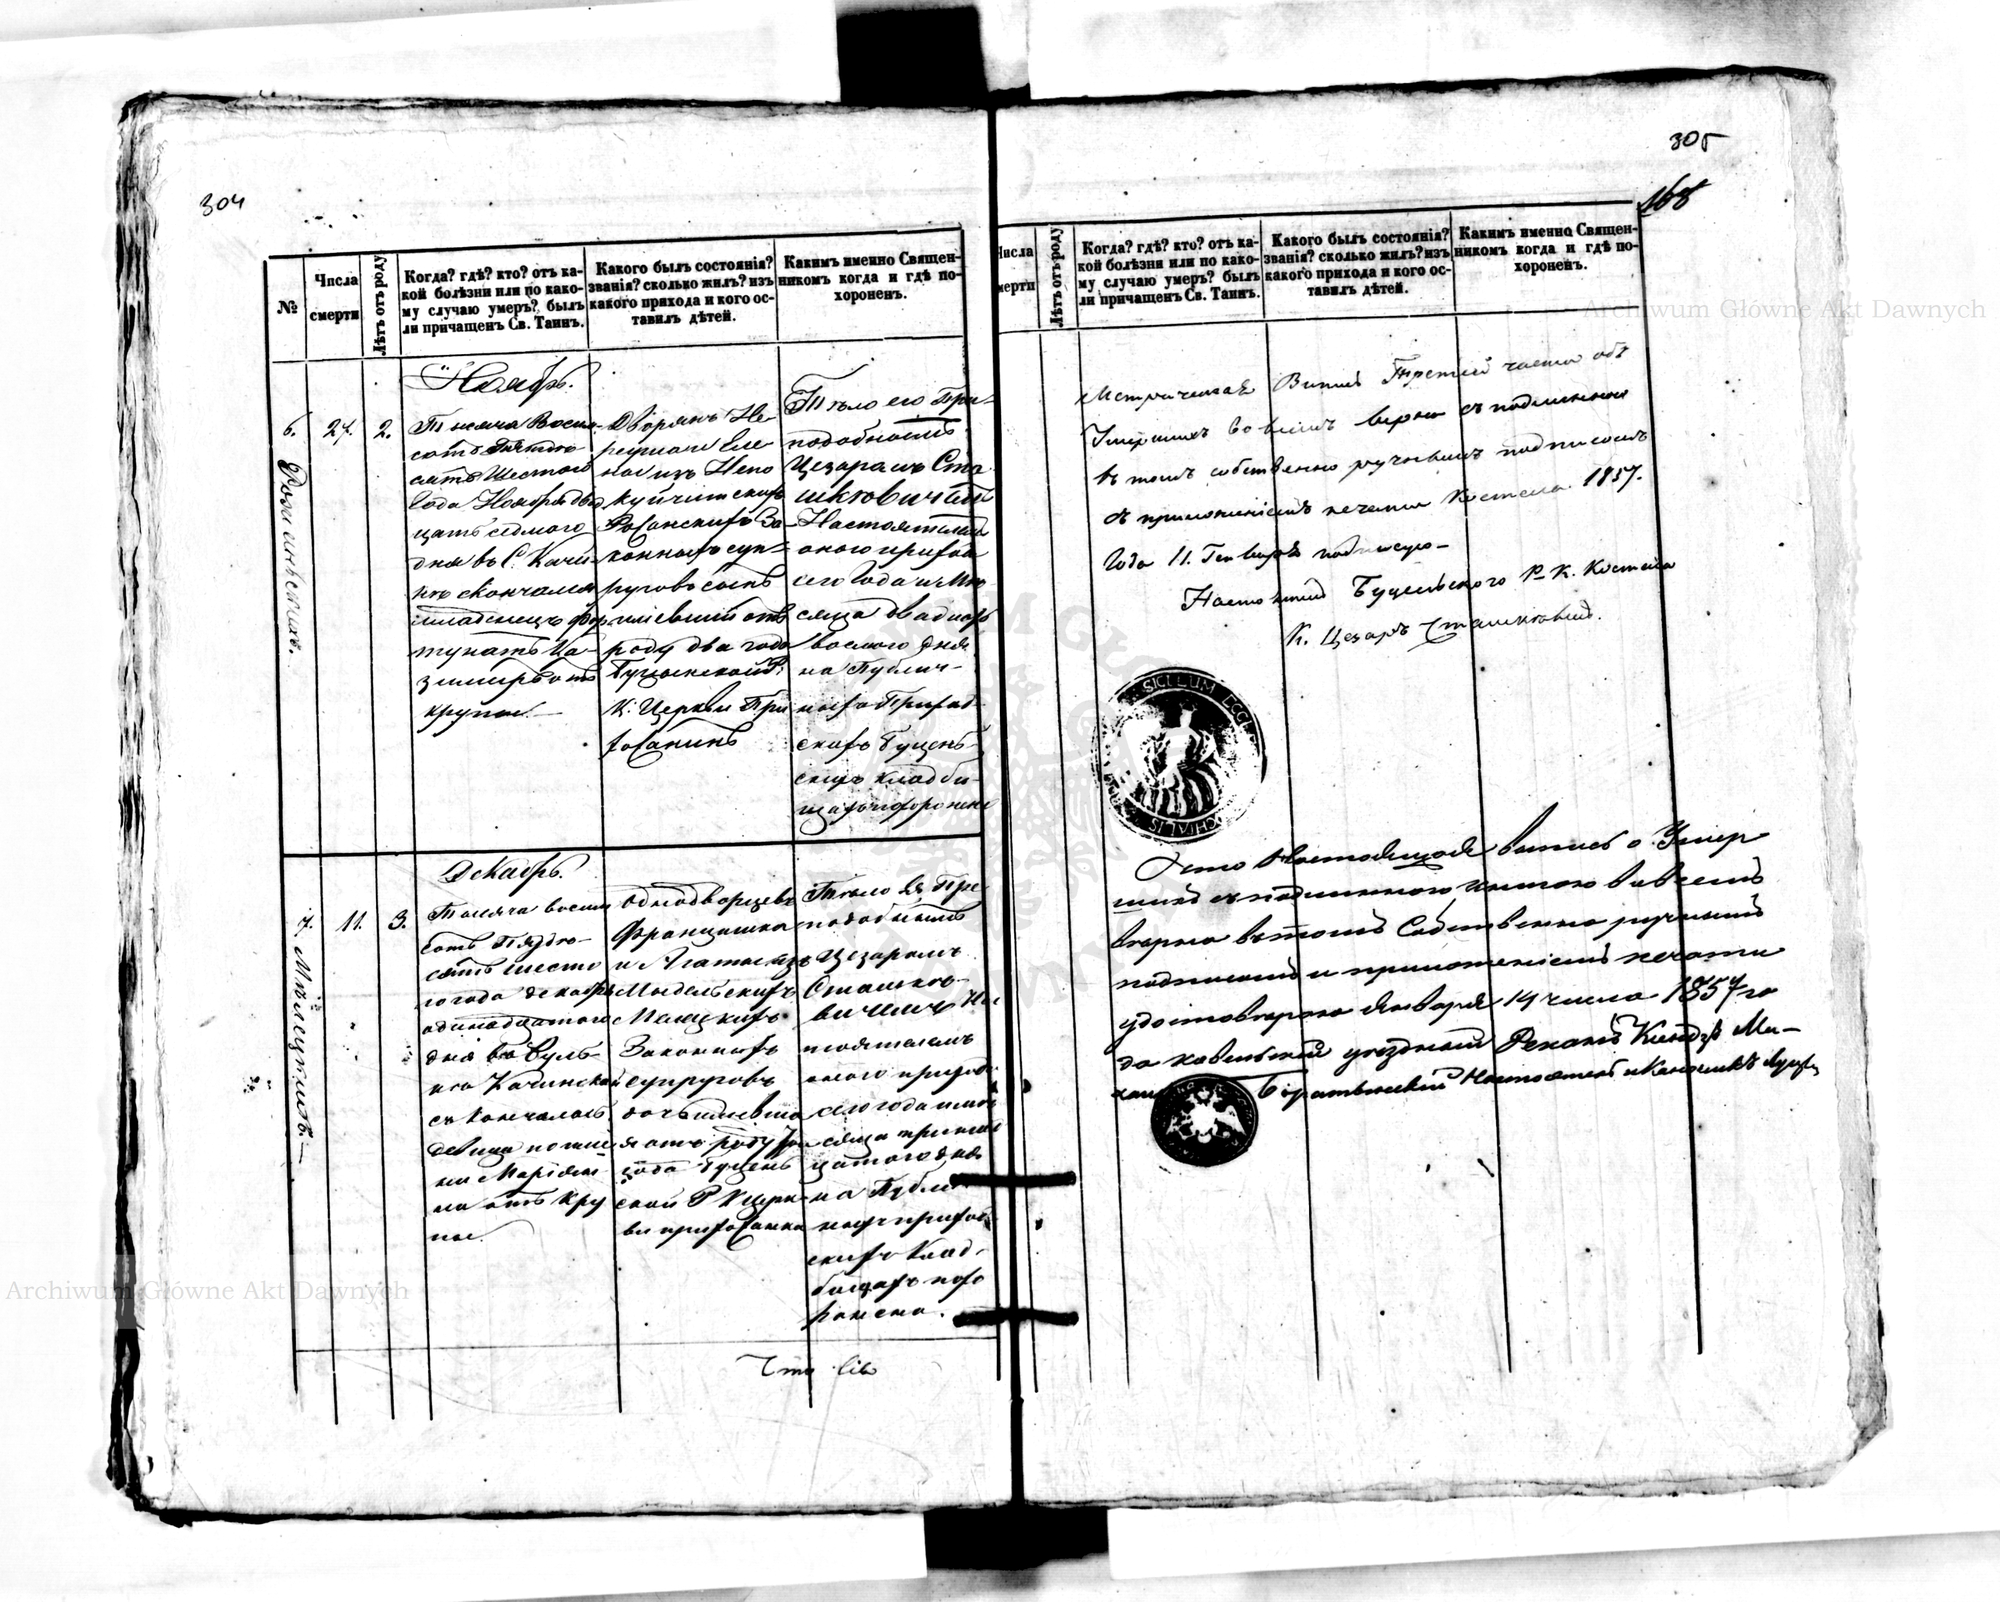 304
№
Числа
смерти
Лѣтъ отъ роду
Когда? гдѣ? кто? отъ ка-
кой болѣзни или по како-
му случаю умеръ? былъ
ли причащенъ Св. Таинъ.
Какого былъ состоянія?
званія? сколько жилъ? изъ
какого прихода и кого ос-
тавилъ дѣтей.
Какимъ именно Священ-
никомъ когда и гдѣ по-
хороненъ.
Ноябрь.
6.
27.
2.
Тысяча Восем-
сотъ Пятьде-
сятъ Шестого
Года Ноября два
цать седмого
дня въ С.
скончался
младенецъ Фор
тунатъ Ка-
зимиръ отъ
крупа.
Дворянъ
законныхъ суп-
руговъ сынъ
имѣвшій отъ
роду два года
К. Церкви При
хожанинъ
Тѣло его Пре-
подобнымъ
Цезаремъ Ста
шкевичемъ
Настоятелемъ
оного прихода
сего Года и Мѣ
сяца двадцать
восмого дня
на Публич-
номъ Приход-
скомъ Буцень-
скомъ кладби-
щѣ похороненъ
Декабрь.
7.
11.
3.
Тысяча восем
сотъ Пядде-
сятъ шесто
го года декабря
одинадцатого
дня въ Буль-
ке Качинской
скончалась
девица по име
ни Маріян-
на отъ кру
па.
однодворцевъ
Францишка
и Агаты изъ
законныхъ
супруговъ
дочь имевша
я отъ роду три
года Буцень
ской Р. К. церк
ви прихожанка
Тѣло Ея Пре
подобнымъ
Цезаремъ
Сташкѣ-
вичемъ На
стоятелемъ
оного приход.
сего года и мѣ
сяца тринад
цатого дня
на Публи
номъ приход
скомъ Клад-
бищѣ похо
ронена.
305
168
Числа
смерти
Лѣтъ отъ роду
Когда? гдѣ? кто? отъ ка-
кой болѣзни или по како-
му случаю умеръ? былъ
ли причащенъ Св. Таинъ.
Какого былъ состоянія?
званія? сколько жилъ? изъ
какого прихода и кого ос-
тавилъ дѣтей.
Какимъ именно Священ-
никомъ когда и гдѣ по-
хороненъ.
Метрическая Выпись Третей части объ
Умершихъ во всемъ верна съ подлинною
въ томъ собственно ручнымъ подписомъ
съ приложеніемъ печати Костела 1857.
Года 11. Генваря подписую-
Настоятель Буценьского Р. К. Костела
К. Цезарь Сташкевичъ.
SIGILLUM ECCL
Что Настоящая выпись о Умер
шихъ съ подлинною книгою во всемъ
верна въ томъ Собственно ручнымъ
подписомъ и приложеніемъ печати
удостоверяю Января 14 числа 1857 го
да Ковельскій уездный Деканъ Ксендзъ Ми-
Archiwum Główne Akt Dawnych
Archiwum Główne Akt Dawnych